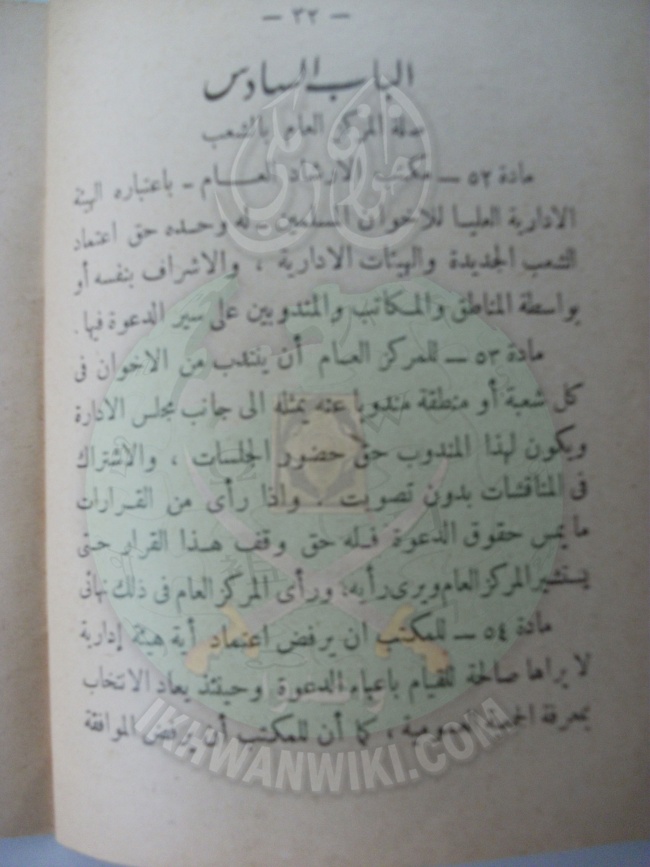 — ٣٢ —
الباب السادس
صلة المركز العام بالشعب
مادة ٥٢ — مكتب الارشاد العـــام - باعتباره الهيئة
الادارية العليا للاخوان المسلمين - له وحده حق اعتماد
الشعب الجديدة والهيئات الادارية ، والاشراف بنفسه أو
بواسطة المناطق والمكاتب والمندوبين على سير الدعوة فيها .
مادة ٥٣ — للمركز العـام أن ينتدب من الاخوان فى
كل شعبة أو منطقة مندوبا عنه يمثله الى جانب مجلس الادارة
ويكون لهذا المندوب حق حضور الجلسات ، والاشتراك
فى المناقشات بدون تصويت . واذا رأى من القـرارات
ما يمس حقوق الدعوة فـله حق وقف هـذا القرار حتى
يستشير المركز العام ويرى رأيه، ورأى المركز العام فى ذلك نهائى
مادة ٥٤ — للمكتب ان يرفض اعتماد أية هيئة إدارية
لا يراها صالحة للقيام باعباء الدعوة وحينئذ يعاد الانتخاب
بمعرفة الجمعية العمومية ، كما أن للمكتب أن يرفض الموافقة
IKHWANWIKI.COM